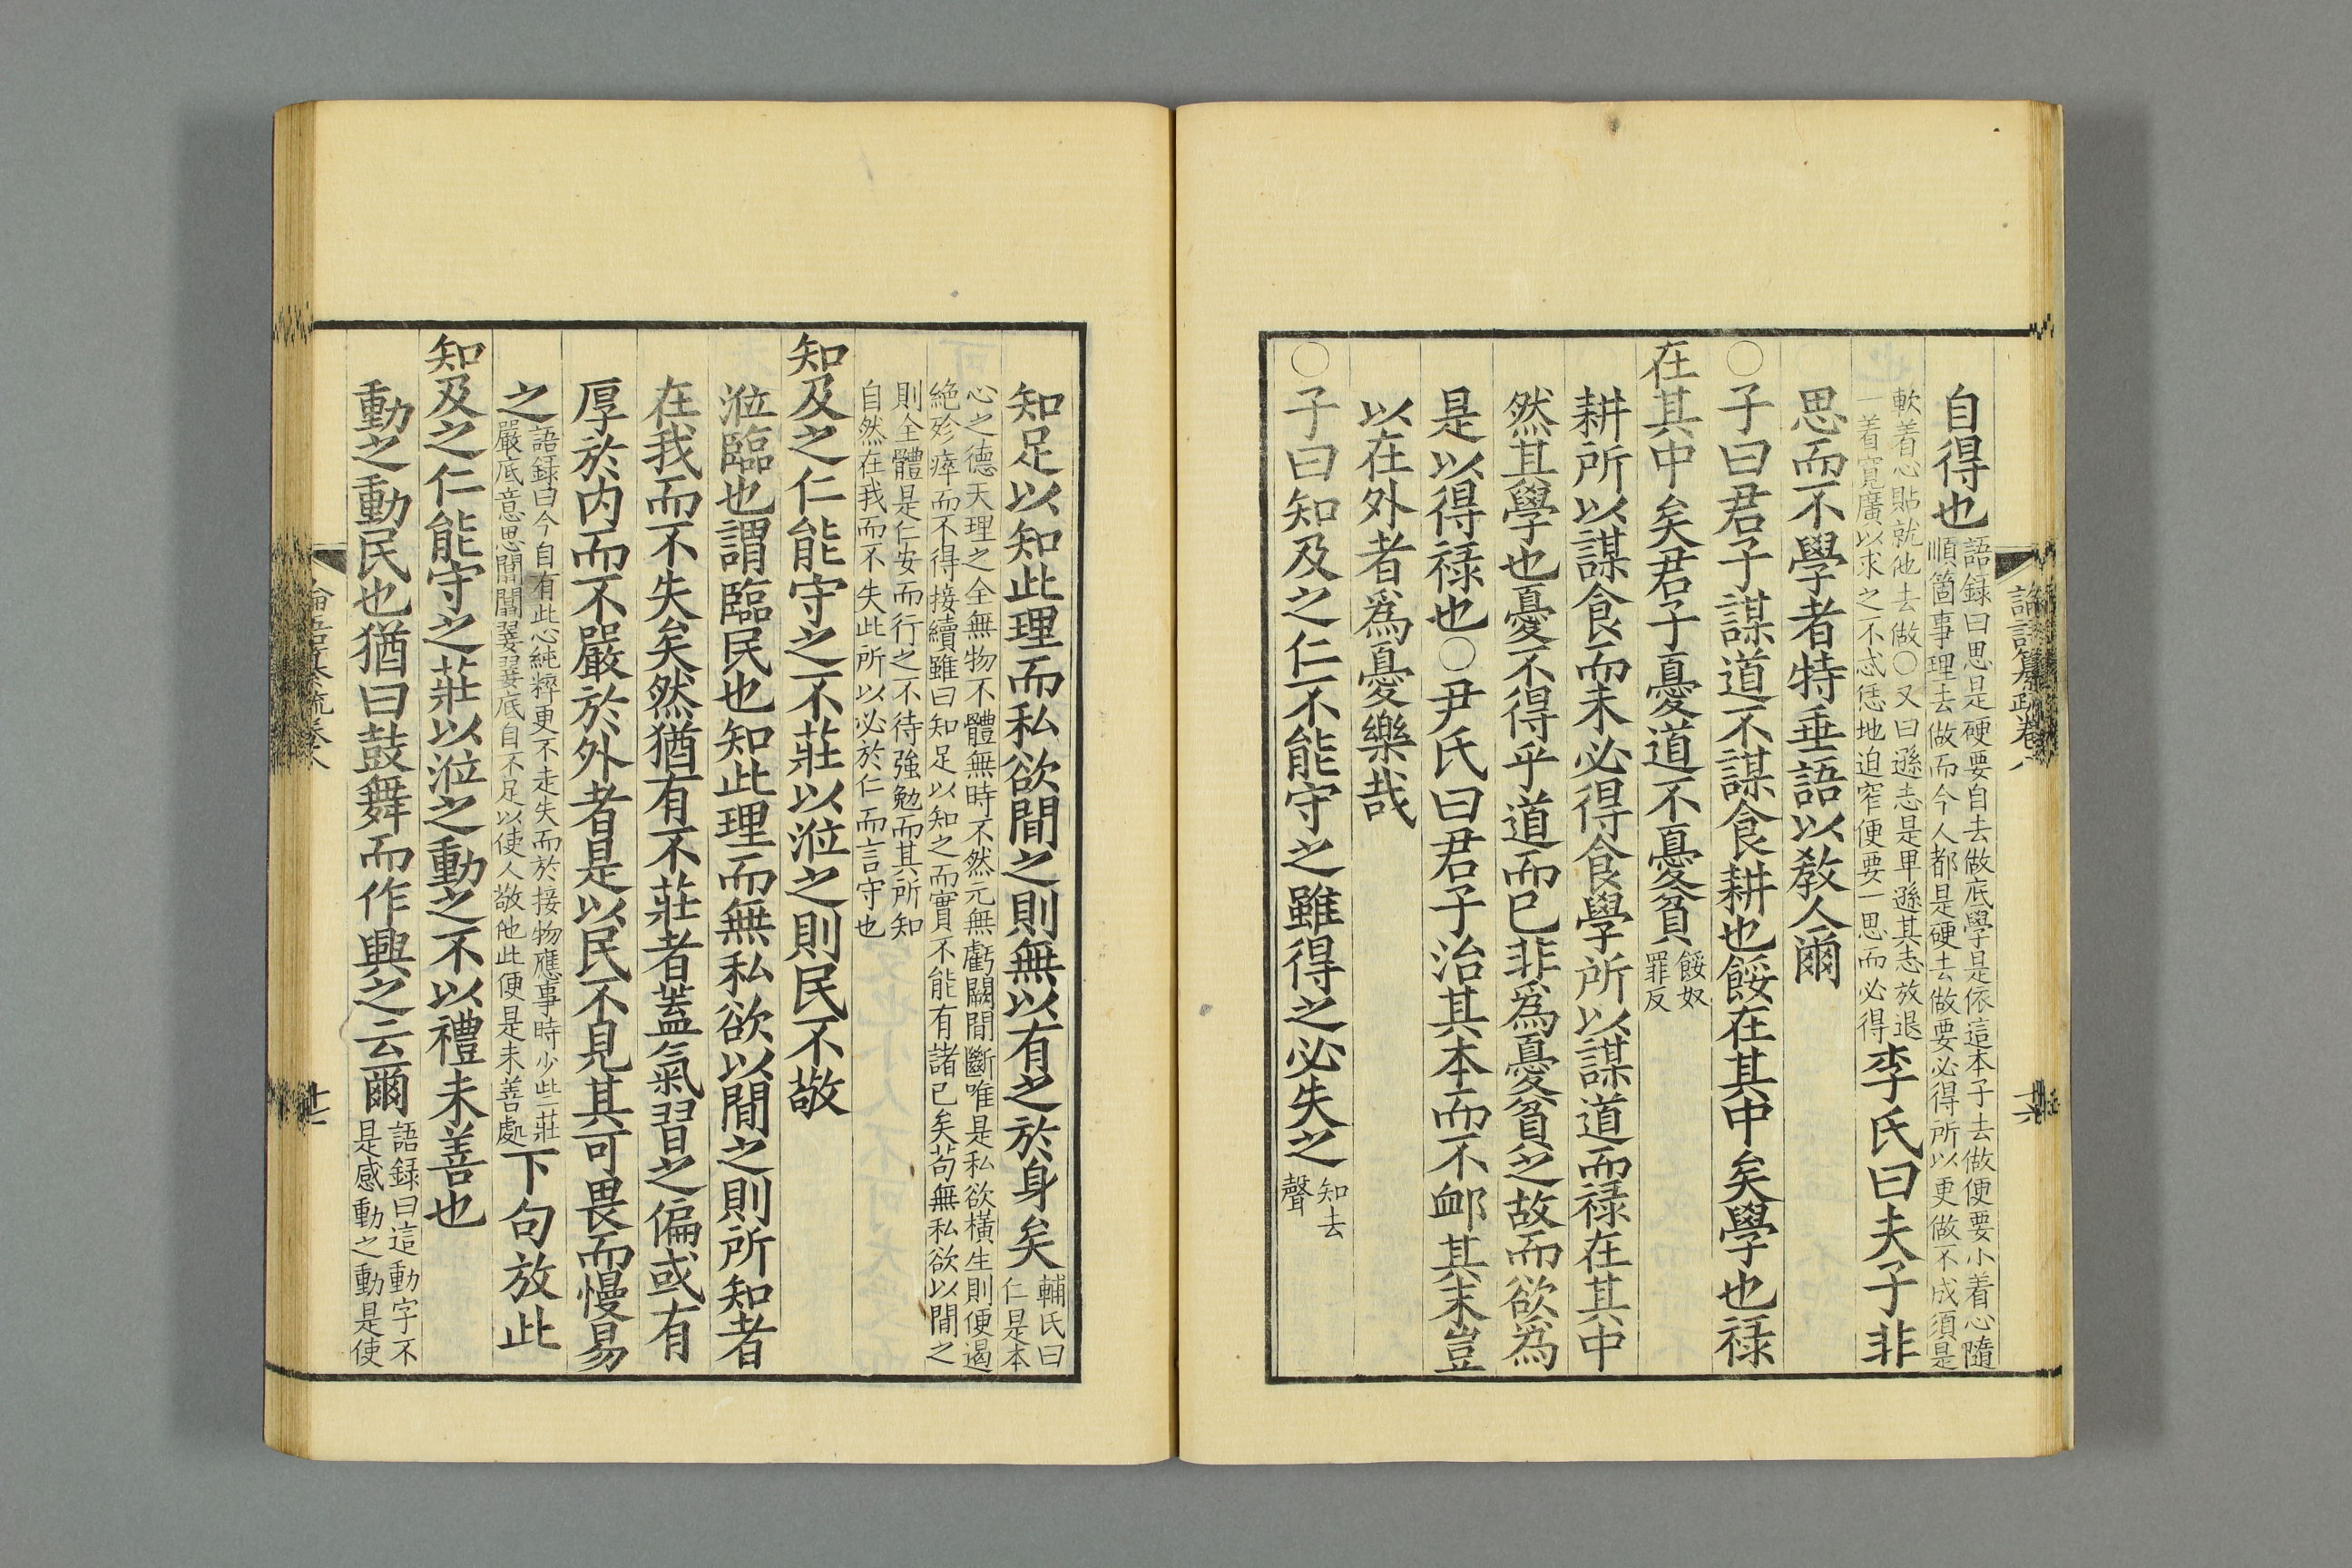 自得也
語録曰思是硬要自去做底學是依這本子去做便要小着心隨
順箇事理去做而今人都是硬去做要必得所以更做不成須是
軟着心貼就他去做〇又曰遜志是卑遜其志放退
一着寬廣以求之不忒恁地迫窄便要一思而必得
李氏曰夫子非
思而不學者特垂語以敎人爾
〇子曰君子謀道不謀食耕也餒在其中矣學也禄
在其中矣君子憂道不憂貧
餒奴
罪反
耕所以謀食而未必得食學所以謀道而禄在其中
然其學也憂不得乎道而已非爲憂貧之故而欲為
是以得禄也〇尹氏曰君子治其本而不䘏其末豈
以在外者爲憂樂哉
〇子曰知及之仁不能守之雖得之必失之
知去
聲
知足以知此理而私欲間之則無以有之於身矣
輔氏曰
仁是本
心之德天理之全無物不體無時不然元無虧闕間斷唯是私欲橫生則便遏
絶殄瘁而不得接續雖曰知足以知之而實不能有諸已矣苟無私欲以間之
則全體是仁安而行之不待強勉而其所知
自然在我而不失此所以必於仁而言守也
知及之仁能守之不莊以涖之則民不敬
涖臨也謂臨民也知此理而無私欲以間之則所知者
在我而不失矣然猶有不莊者蓋氣習之偏或有
厚於内而不嚴於外者是以民不見其可畏而慢易
之
語録曰今自有此心純粹更不走失而於接物應事時少些莊
嚴底意思闒闒翣翣底自不足以使人敬他此便是未善處
下句放此
知及之仁能守之莊以涖之動之不以禮未善也
動之動民也猶曰鼓舞而作興之云爾
語録曰這動字不
是感動之動是使